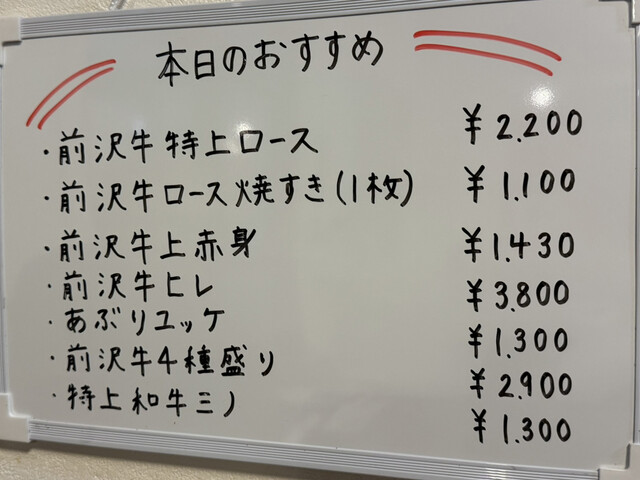 本日のおすすめ
・前沢牛特上ロース ¥2.200
・前沢牛ロース焼すき(1枚) ¥1.100
・前沢牛上赤身 ¥1.430
・前沢牛ヒレ ¥3.800
・あぶりユッケ ¥1.300
・前沢牛4種盛り ¥2.900
・特上和牛ミノ ¥1.300